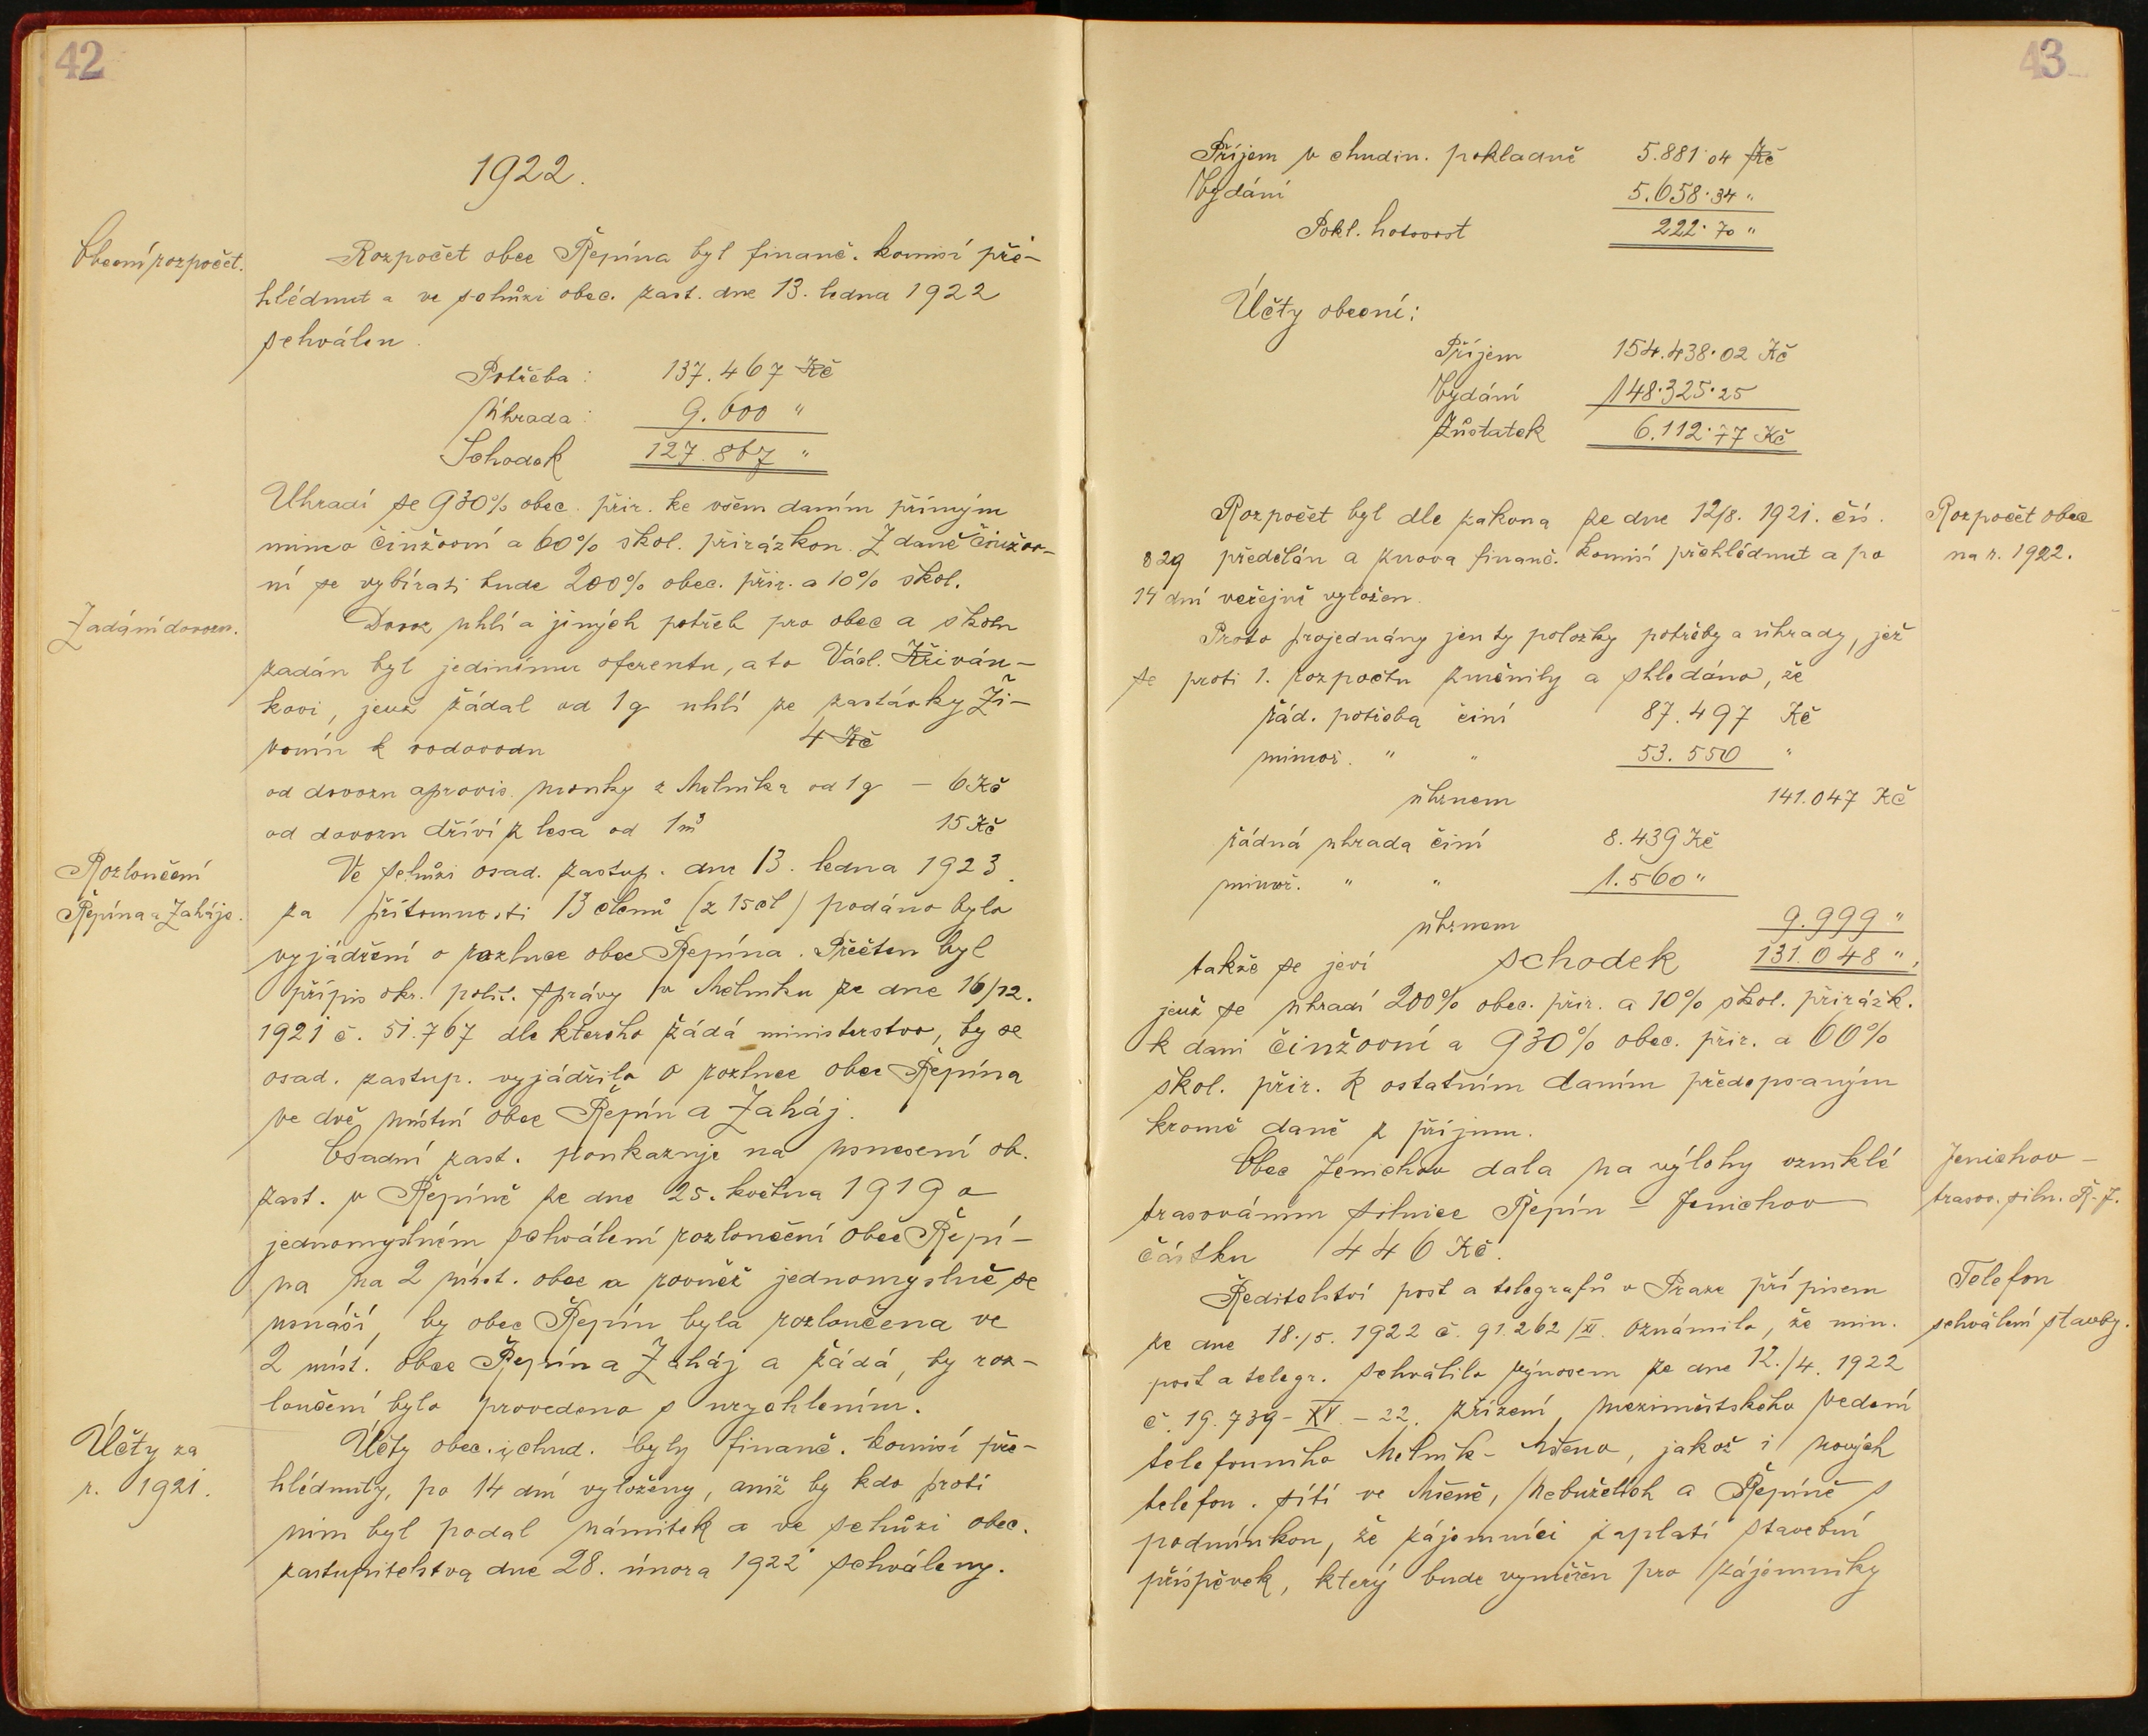 42
1922.
Obecní rozpočet.
Rozpočet obce Řepína byl finanč. komisí pře-
hlédnut a ve schůzi obec. zast. dne 13. ledna 1922
schválen.
Potřeba: 137.467 Kč
Úhrada: 9.600 "
Schodek 127.867 "
Uhradí se 930% obec. přir. ke všem daním přímým
mimo činžovní a 60% škol. přirázkou. Z daně činžov-
ní se vybírati bude 200% obec. přir. a 10% škol.
Zadání dovozu.
Dovoz uhlí a jiných potřeb pro obec a školu
zadán byl jedinému oferentu, a to Václ. Křiván-
kovi, jenž žádal od 1 q uhlí ze zastávky Ži-
vonín k vodovodu 4 Kč
od dovozu aprovis. mouky z Mělníka od 1 q – 6 Kč
od dovozu dříví z lesa od 1 m³ 15 Kč
Rozloučení
Řepína a Zaháje.
Ve schůzi osad. zastup. dne 13. ledna 1923.
za přítomnosti 13 členů (z 15 čl) podáno bylo
vyjádření o rozluce obce Řepína. Přečten byl
přípis okr. polit. správy v Mělníku ze dne 16/12.
1921 č. 51.767 dle kterého žádá ministerstvo, by se
osad. zastup. vyjádřilo o rozluce obce Řepína
ve dvě místní obce Řepín a Zaháj.
Osadní zast. poukazuje na usnesení ob.
zast. v Řepíně ze dne 25. května 1919 o
jednomyslném schválení rozloučení obce Řepí-
na na 2 míst. obce a rovněž jednomyslně se
usnáší, by obec Řepín byla rozloučena ve
2 míst. obce Řepín a Zaháj a žádá, by roz-
loučení bylo provedeno s urychlením.
Účty za
r. 1921.
Účty obec. i chud. byly finanč. komisí pře-
hlédnuty, po 14 dní vyloženy, aniž by kdo proti
nim byl podal námitek a ve schůzi obec.
zastupitelstva dne 28. února 1922 schváleny.
43
Příjem v chudin. pokladně 5.881·04 Kč
Vydání 5.658·34 "
Pokl. hotovost 222·70 "
Účty obecní:
Příjem 154.438·02 Kč
Vydání 148·325·25
Zůstatek 6.112·77 Kč
Rozpočet obce
na r. 1922.
Rozpočet byl dle zákona ze dne 12/8. 1921. čís.
829 předělán a znova finanč. komisí přehlédnut a po
14 dní veřejně vyložen.
Proto projednány jen ty položky potřeby a úhrady, jež
se proti 1. rozpočtu změnily a shledáno, že
řád. potřeba činí 87.497 Kč
mimoř. " " 53.550 "
úhrnem 141.047 Kč
řádná úhrada činí 8.439 Kč
mimoř. " " 1.560 "
úhrnem 9.999 "
takže se jeví schodek 131.048 ",
jenž se uhradí 200% obec. přir. a 10% škol. přirážk.
k dani činžovní a 930% obec. přir. a 60%
škol. přir. k ostatním daním předepsaným
kromě daně z příjmu.
Jenichov –
trasov. siln. Ř.-J.
Obec Jenichov dala na výlohy vzniklé
trasováním silnice Řepín – Jenichov
částku 446 Kč.
Telefon
schválení stavby.
Ředitelství pošt a telegrafů v Praze přípisem
ze dne 18./5. 1922 č. 91.262/XI. oznámilo, že min.
pošt a telegr. schválilo výnosem ze dne 12./4. 1922
č. 19.739-XV.-22. zřízení meziměstského vedení
telefonního Mělník - Mšeno, jakož i nových
telefon. sítí ve Mšeně, Nebuželích a Řepíně s
podmínkou, že zájemníci zaplatí stavební
příspěvek, který bude vyměřen pro zájemníky